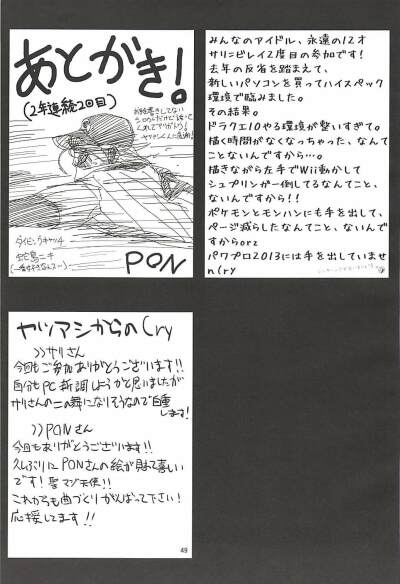 あとがき!
(2年連続2回目)
ダイビングキャッチ
PON
みんなのアイドル、永遠の12才
サリーどレイ2度目の参加です!
去年の反省を踏まえて、
新しいパソコンを買ってハイスペック
環境で臨みました。
その結果。
ドラクエ10やる環境が整いすぎて。
描く時間がなくなっちゃった、なんて
ことないんですから…。
描きながら左手でWii動かして
シュプリンガー倒してるなんてこと、
ないんですから!!
ポケモンとモンハンにも手を出して、
ページ減らしたなんてこと、ないんで
すからorz
パワプロ2013には手を出していませ
んCry
ヤツアシからのCry
>>サリさん
今回もご参加ありがとうございます!!
自分もPC新調しようかと思いましたが
サリさんの二の舞になりそうなので自重
します!
>>PONさん
今回もありがとうございます!!
久しぶりにPONさんの絵が見れて喜しい
です!聖マジ天使!!
これからも曲づくりがんばって下さい!
応援してます!!
49